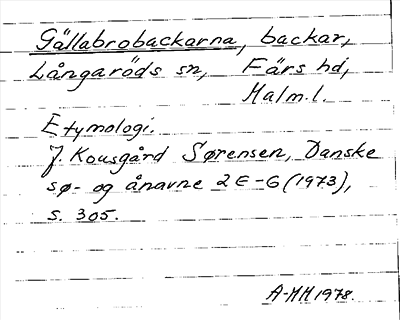 Gällabrobackarna, backar,
Långaröds sn, Färs hd,
Malm.l.
Etymologi.
J. Kousgård Sørensen, Danske
sø- og ånavne 2 E-G (1973),
s. 305.
A-MH 1978.